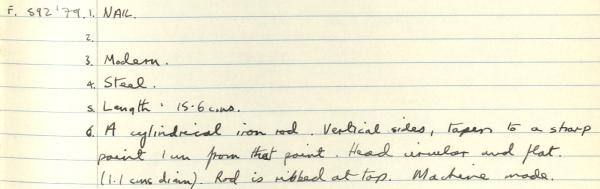 F. S92'79. 1. NAIL.
2.
3. Modern.
4. Steel.
5. Length. 15.6 cms.
6. A cylindrical iron rod. Vertical sides, tapers to a sharp
point 1 cm from that point. Head circular and flat.
(1.1 cms diam). Rod is ribbed at top. Machine made.